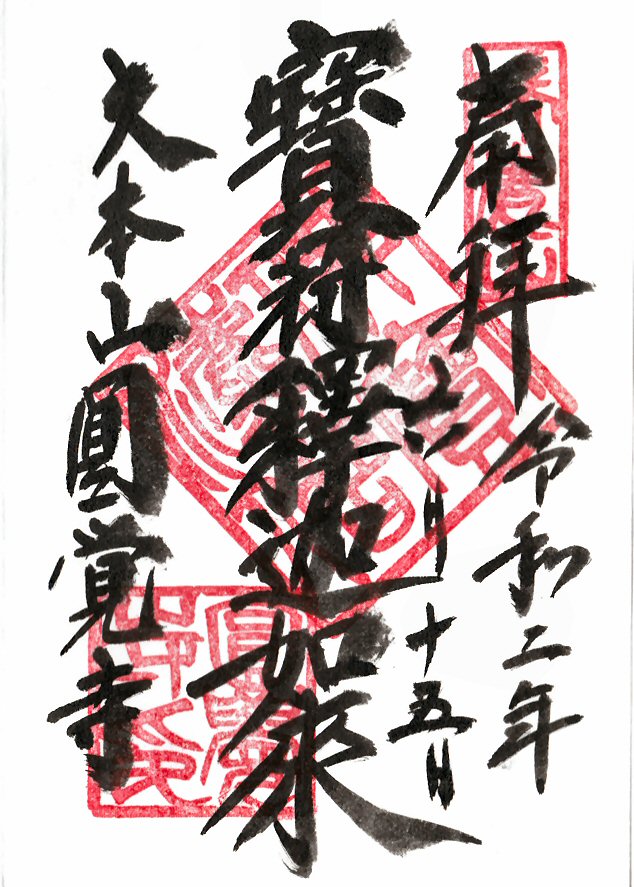 奉拝 令和二年
六月十五日
寶冠釋迦如来
大本山圓覚寺